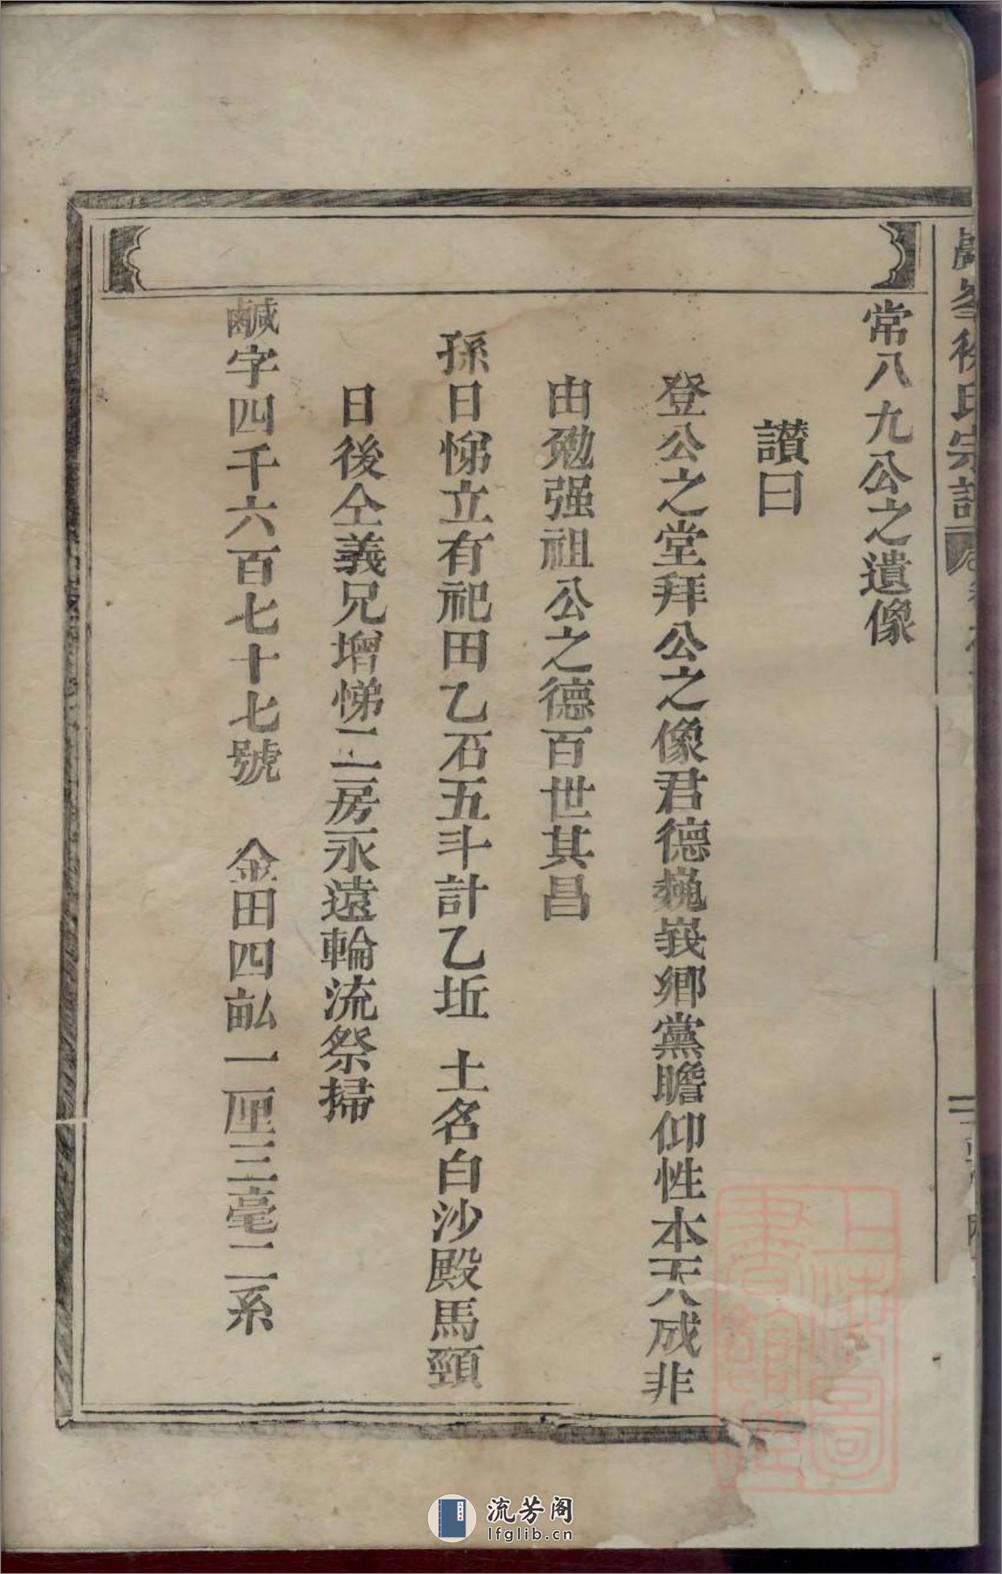 常八九公之遺像
讃曰
登公之堂拜公之像君德巍峩鄉黨瞻仰性本天成非
由勉强祖公之德百世其昌
孫日悌立有祀田乙石五斗計乙坵 土名白沙殿馬頸
日後仝義兄增悌二房永遠輪流祭掃
鹹字四千六百七十七號 金田四畝一厘三毫二系
峯徐氏宗譜
上海圖書館藏
流芳阁
lfglib.cn